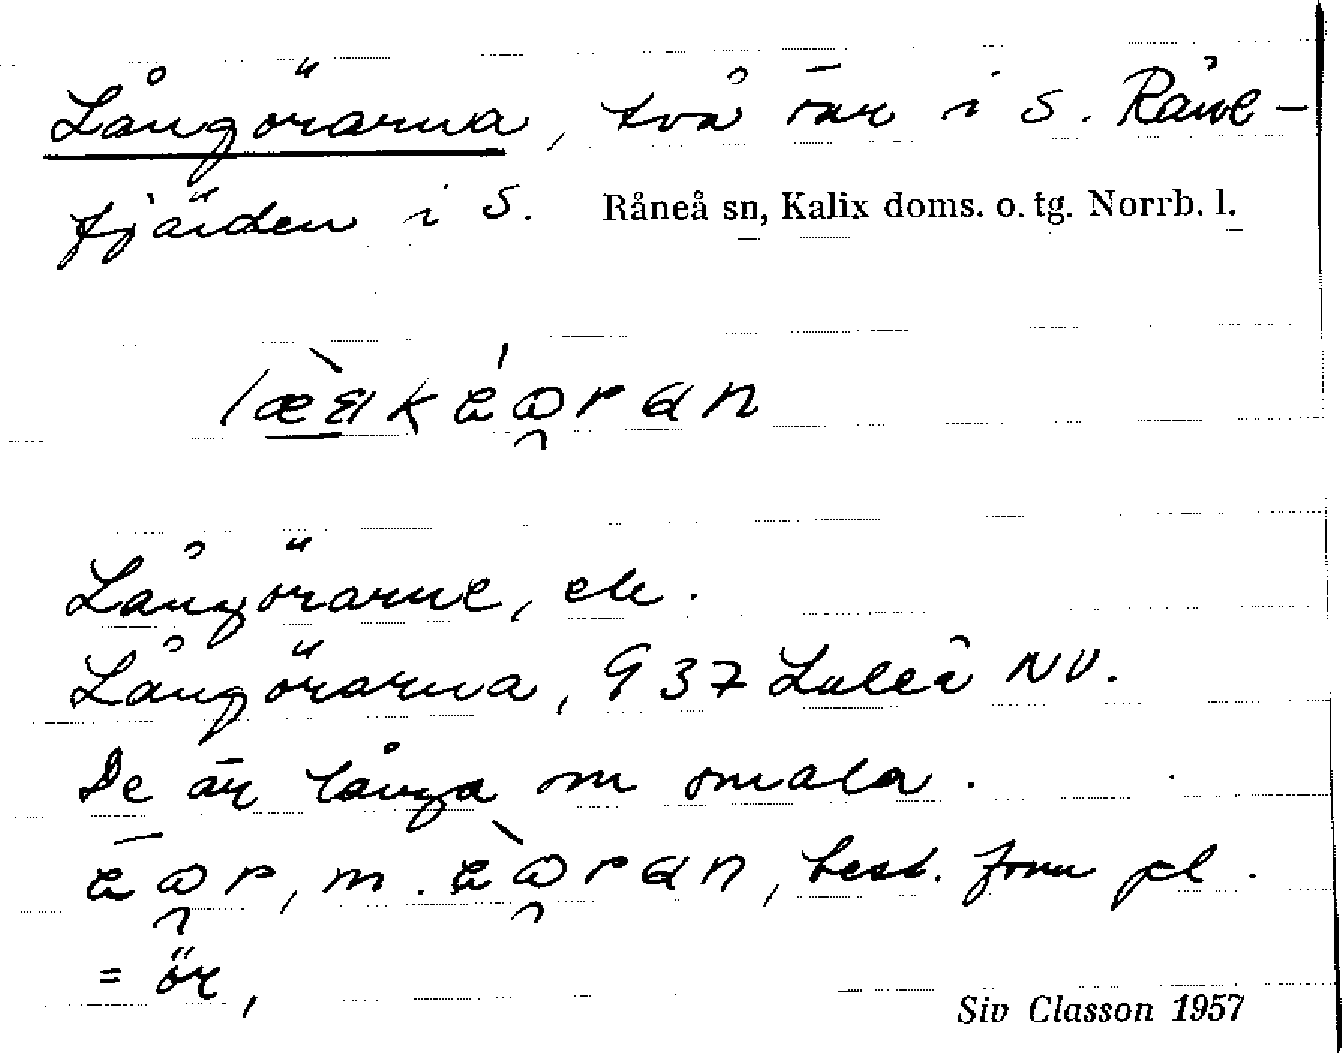 Långörarna, två öar i S. Råne-
fjärden i S. Råneå sn, Kalix doms. o. tg. Norrb. l.
Långörarne, ek.
Långörarna, 937 Luleå NV.
De är långa o smala.
m. best. form pl.
= ör,
Siv Classon 1957